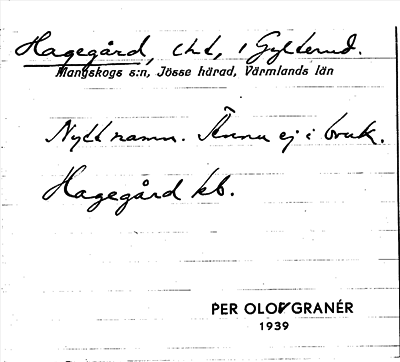 Hagegård, cht, i Gylterud.
Mangskogs s:n, Jösse härad, Värmlands län
Nytt namn. Ännu ej i bruk.
Hagegård kb.
PER OLOF GRANÉR
1939